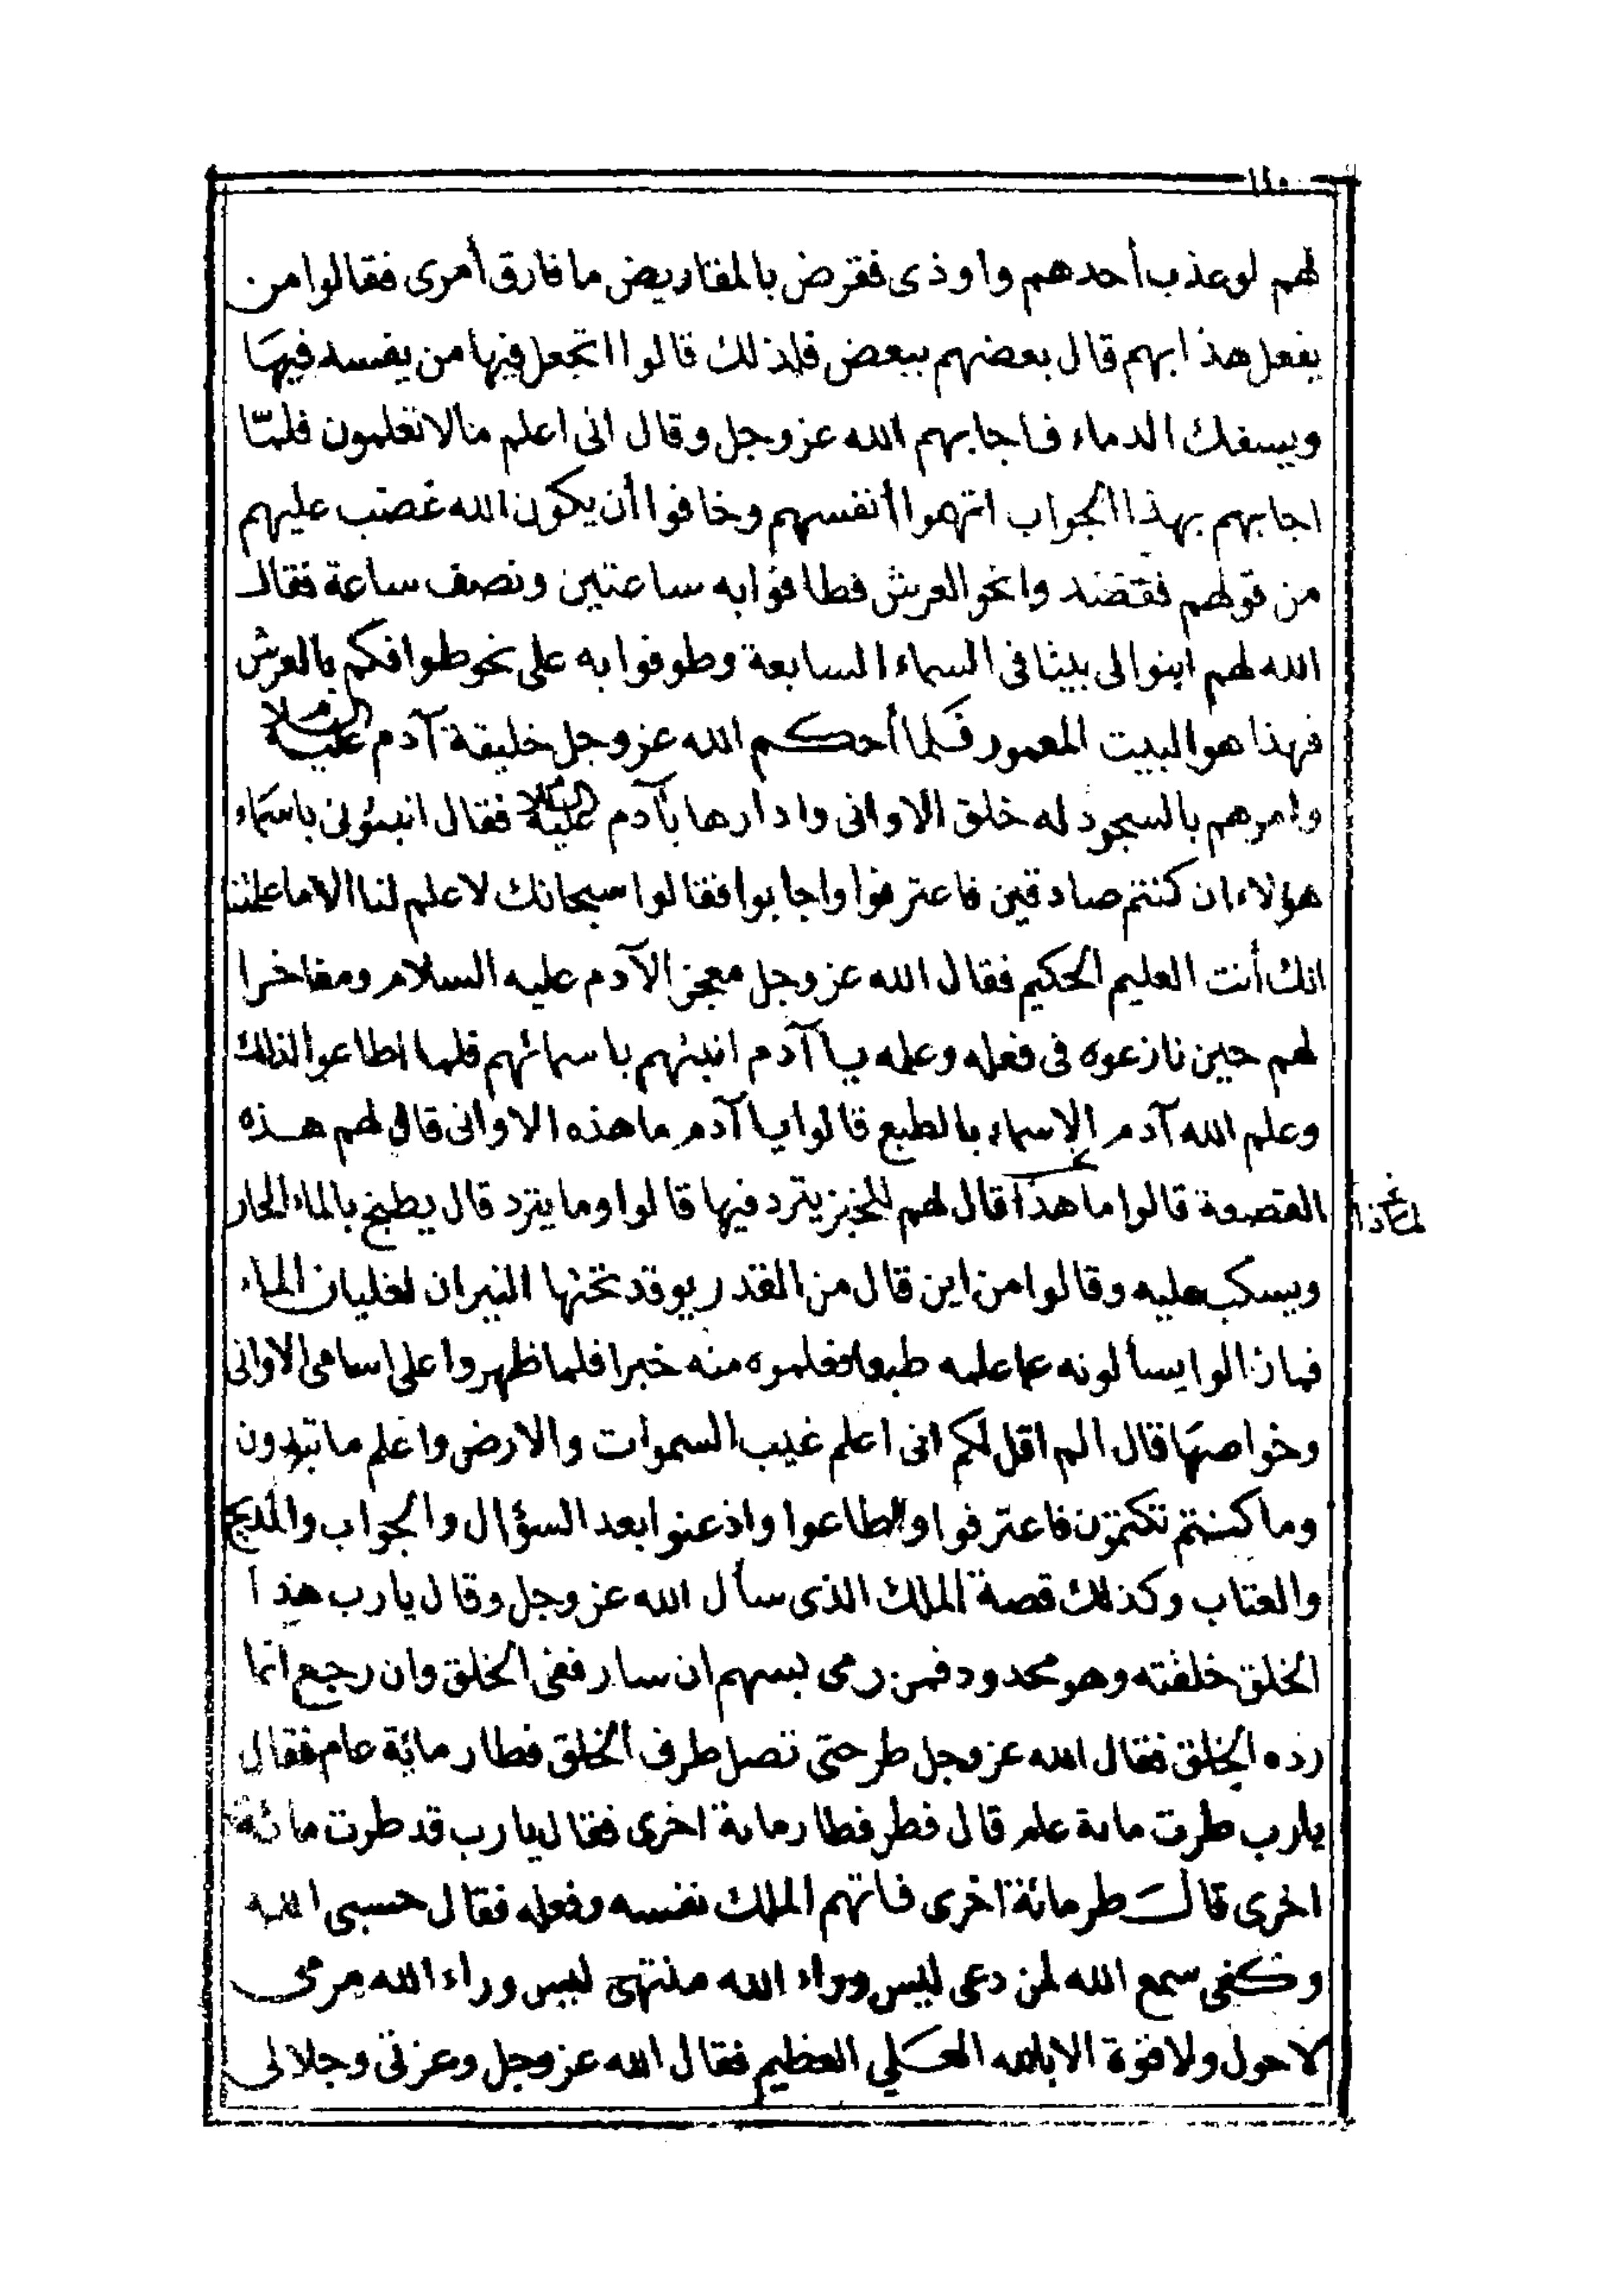 ١٤٥
لهم لو عذب أحدهم واوذى فقرض بالمقاريض ما فارق أمرى فقالوا من
يفعل هذا بهم قال بعضهم ببعض فلذلك قالوا اتجعل فيها من يفسد فيها
ويسفك الدماء فاجابهم الله عز وجل وقال انى اعلم مالا تعلمون فلمّا
اجابهم بهذا الجواب اتهموا أنفسهم وخافوا أن يكون الله غضب عليهم
من قولهم فقصدوا نحو العرش فطافوا به ساعتين ونصف ساعة فقال
الله لهم ابنوا لى بيتا فى السماء السابعة وطوفوا به على نحو طوافكم بالعرش
فهذا هو البيت المعمور فلما أحكم الله عز وجل خليقة آدم عليه السلام
وامرهم بالسجود له خلق الاوانى وادارها بآدم عليه السلام فقال انبؤنى باسماء
هؤلاء ان كنتم صادقين فاعترفوا واجابوا فقالوا سبحانك لا علم لنا الا ما علمتنا
انك أنت العليم الحكيم فقال الله عز وجل معجزا لآدم عليه السلام ومفاخرا
لهم حين نازعوه فى فعله وعلمه يا آدم انبئهم باسمائهم فلما اطاعوا لذلك
وعلم الله آدم الاسماء بالطبع قالوا يا آدم ما هذه الاوانى قال لهم هذه
القصعة قالوا ما هذا قال لهم للخبز يثرد فيها قالوا وما يثرد قال يطبخ بالماء الحار
لماذا
ويسكب عليه وقالوا من اين قال من القدر يوقد تحتها النيران لغليان الماء
فما زالوا يسألونه عما علمه طبعا فعلموه منه خبرا فلما ظهروا على اسامى الاوانى
وخواصها قال الم اقل لكم انى اعلم غيب السموات والارض واعلم ما تبدون
وما كنتم تكتمون فاعترفوا واطاعوا واذعنوا بعد السؤال والجواب والمديح
والعتاب وكذلك قصة الملك الذى سأل الله عز وجل وقال يا رب هذا
الخلق خلقته وهو محدود فمن رمى بسهم ان سار ففى الخلق وان رجع انما
رده الخلق فقال الله عز وجل طر حتى تصل طرف الخلق فطار مائة عام فقال
يارب طرت مائة عام قال فطر فطار مائة اخرى فقال يا رب قد طرت مائة
اخرى قال طر مائة اخرى فاتهم الملك نفسه وفعله فقال حسبى الله
وكفى سمع الله لمن دعى ليس وراء الله منتهى ليس وراء الله مرمى
لا حول ولا قوة الا بالله العلي العظيم فقال الله عز وجل وعزتى وجلالى